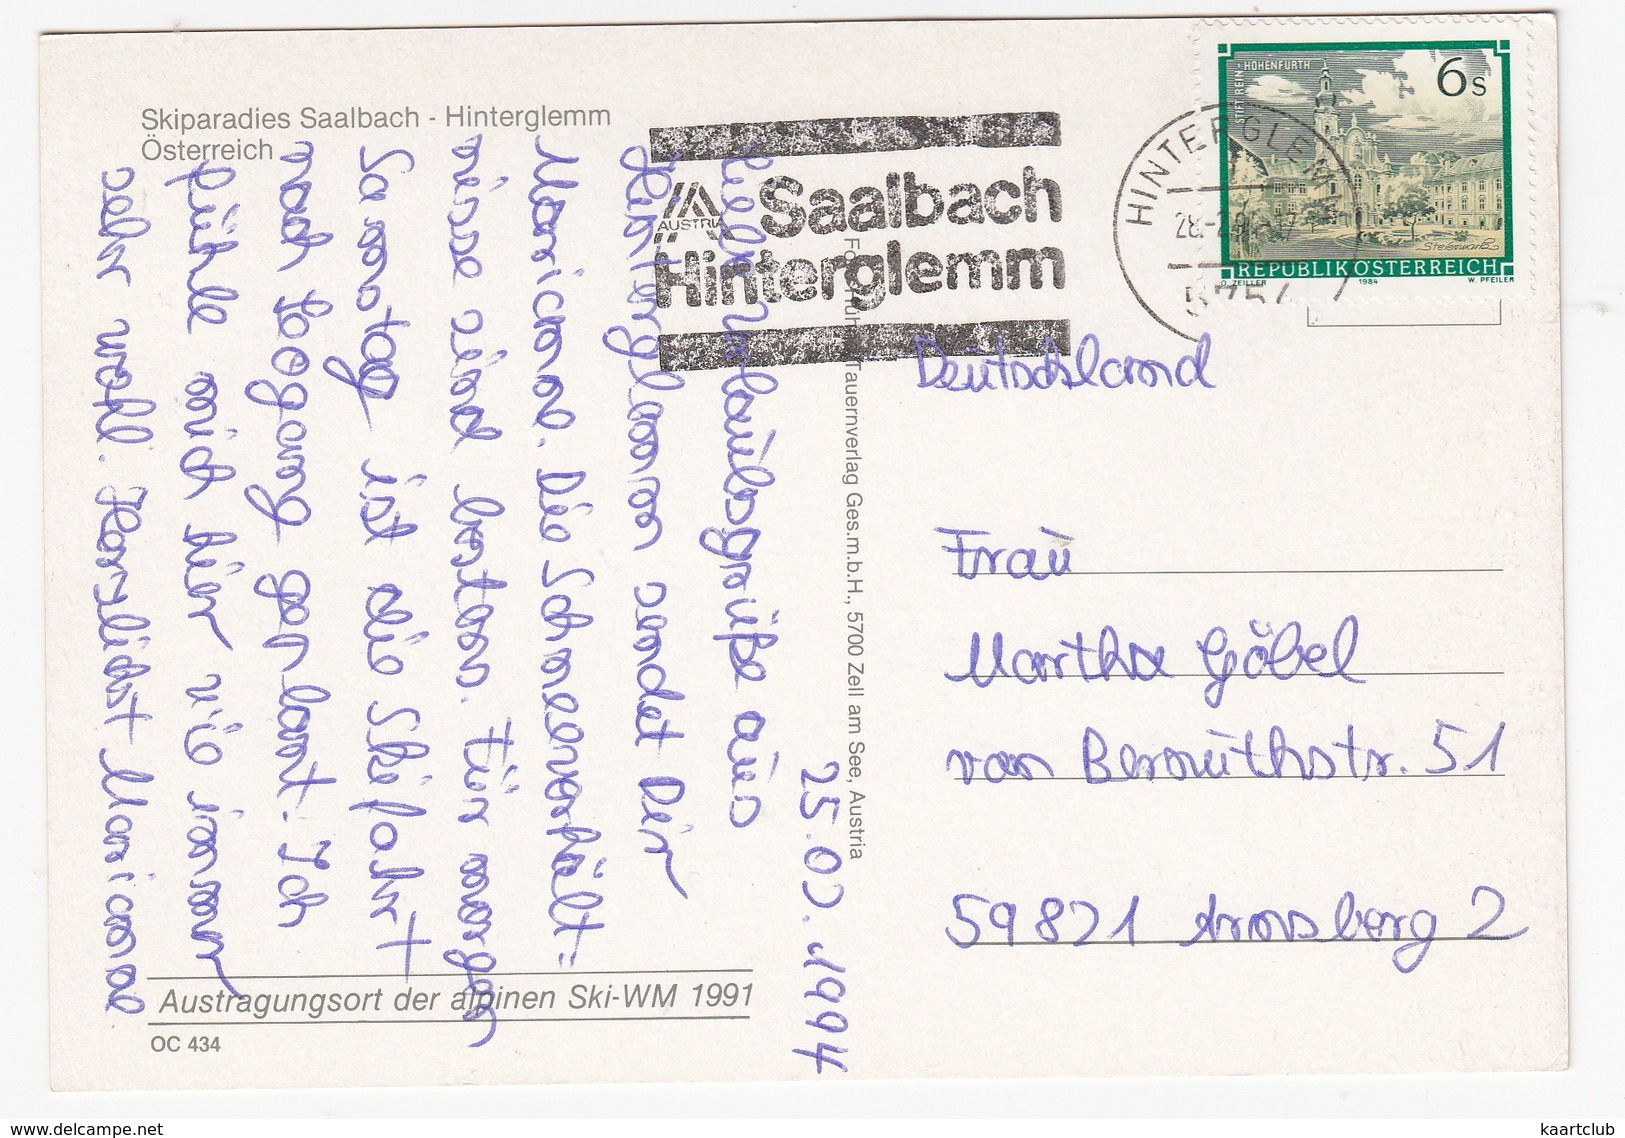 Skiparadies Saalbach - Hinterglemm
Österreich
AUSTRIA
Saalbach
Hinterglemm
HINTERGLEMM
28.-2.94
5754
STIFT REIN - HOHENFURTH
6s
Steiermark
REPUBLIK ÖSTERREICH
O. ZEILLER 1984 W. PFEILER
25.02.1994
Urlaubsgrüße aus
Hinterglemm sendet Dir
Marianne. Die Schneeverhält=
nisse sind bestens. Für morgen
Samstag ist die Skifahrt
nach Leogang geplant. Ich
fühle mich hier wie immer
sehr wohl. Herzlichst Marianne
Tauernverlag Ges.m.b.H., 5700 Zell am See, Austria
Deutschland
Frau
Martha Göbel
von Bernuthstr. 51
59821 Arnsberg 2
Austragungsort der alpinen Ski-WM 1991
OC 434
www.delcampe.net
kaartclub